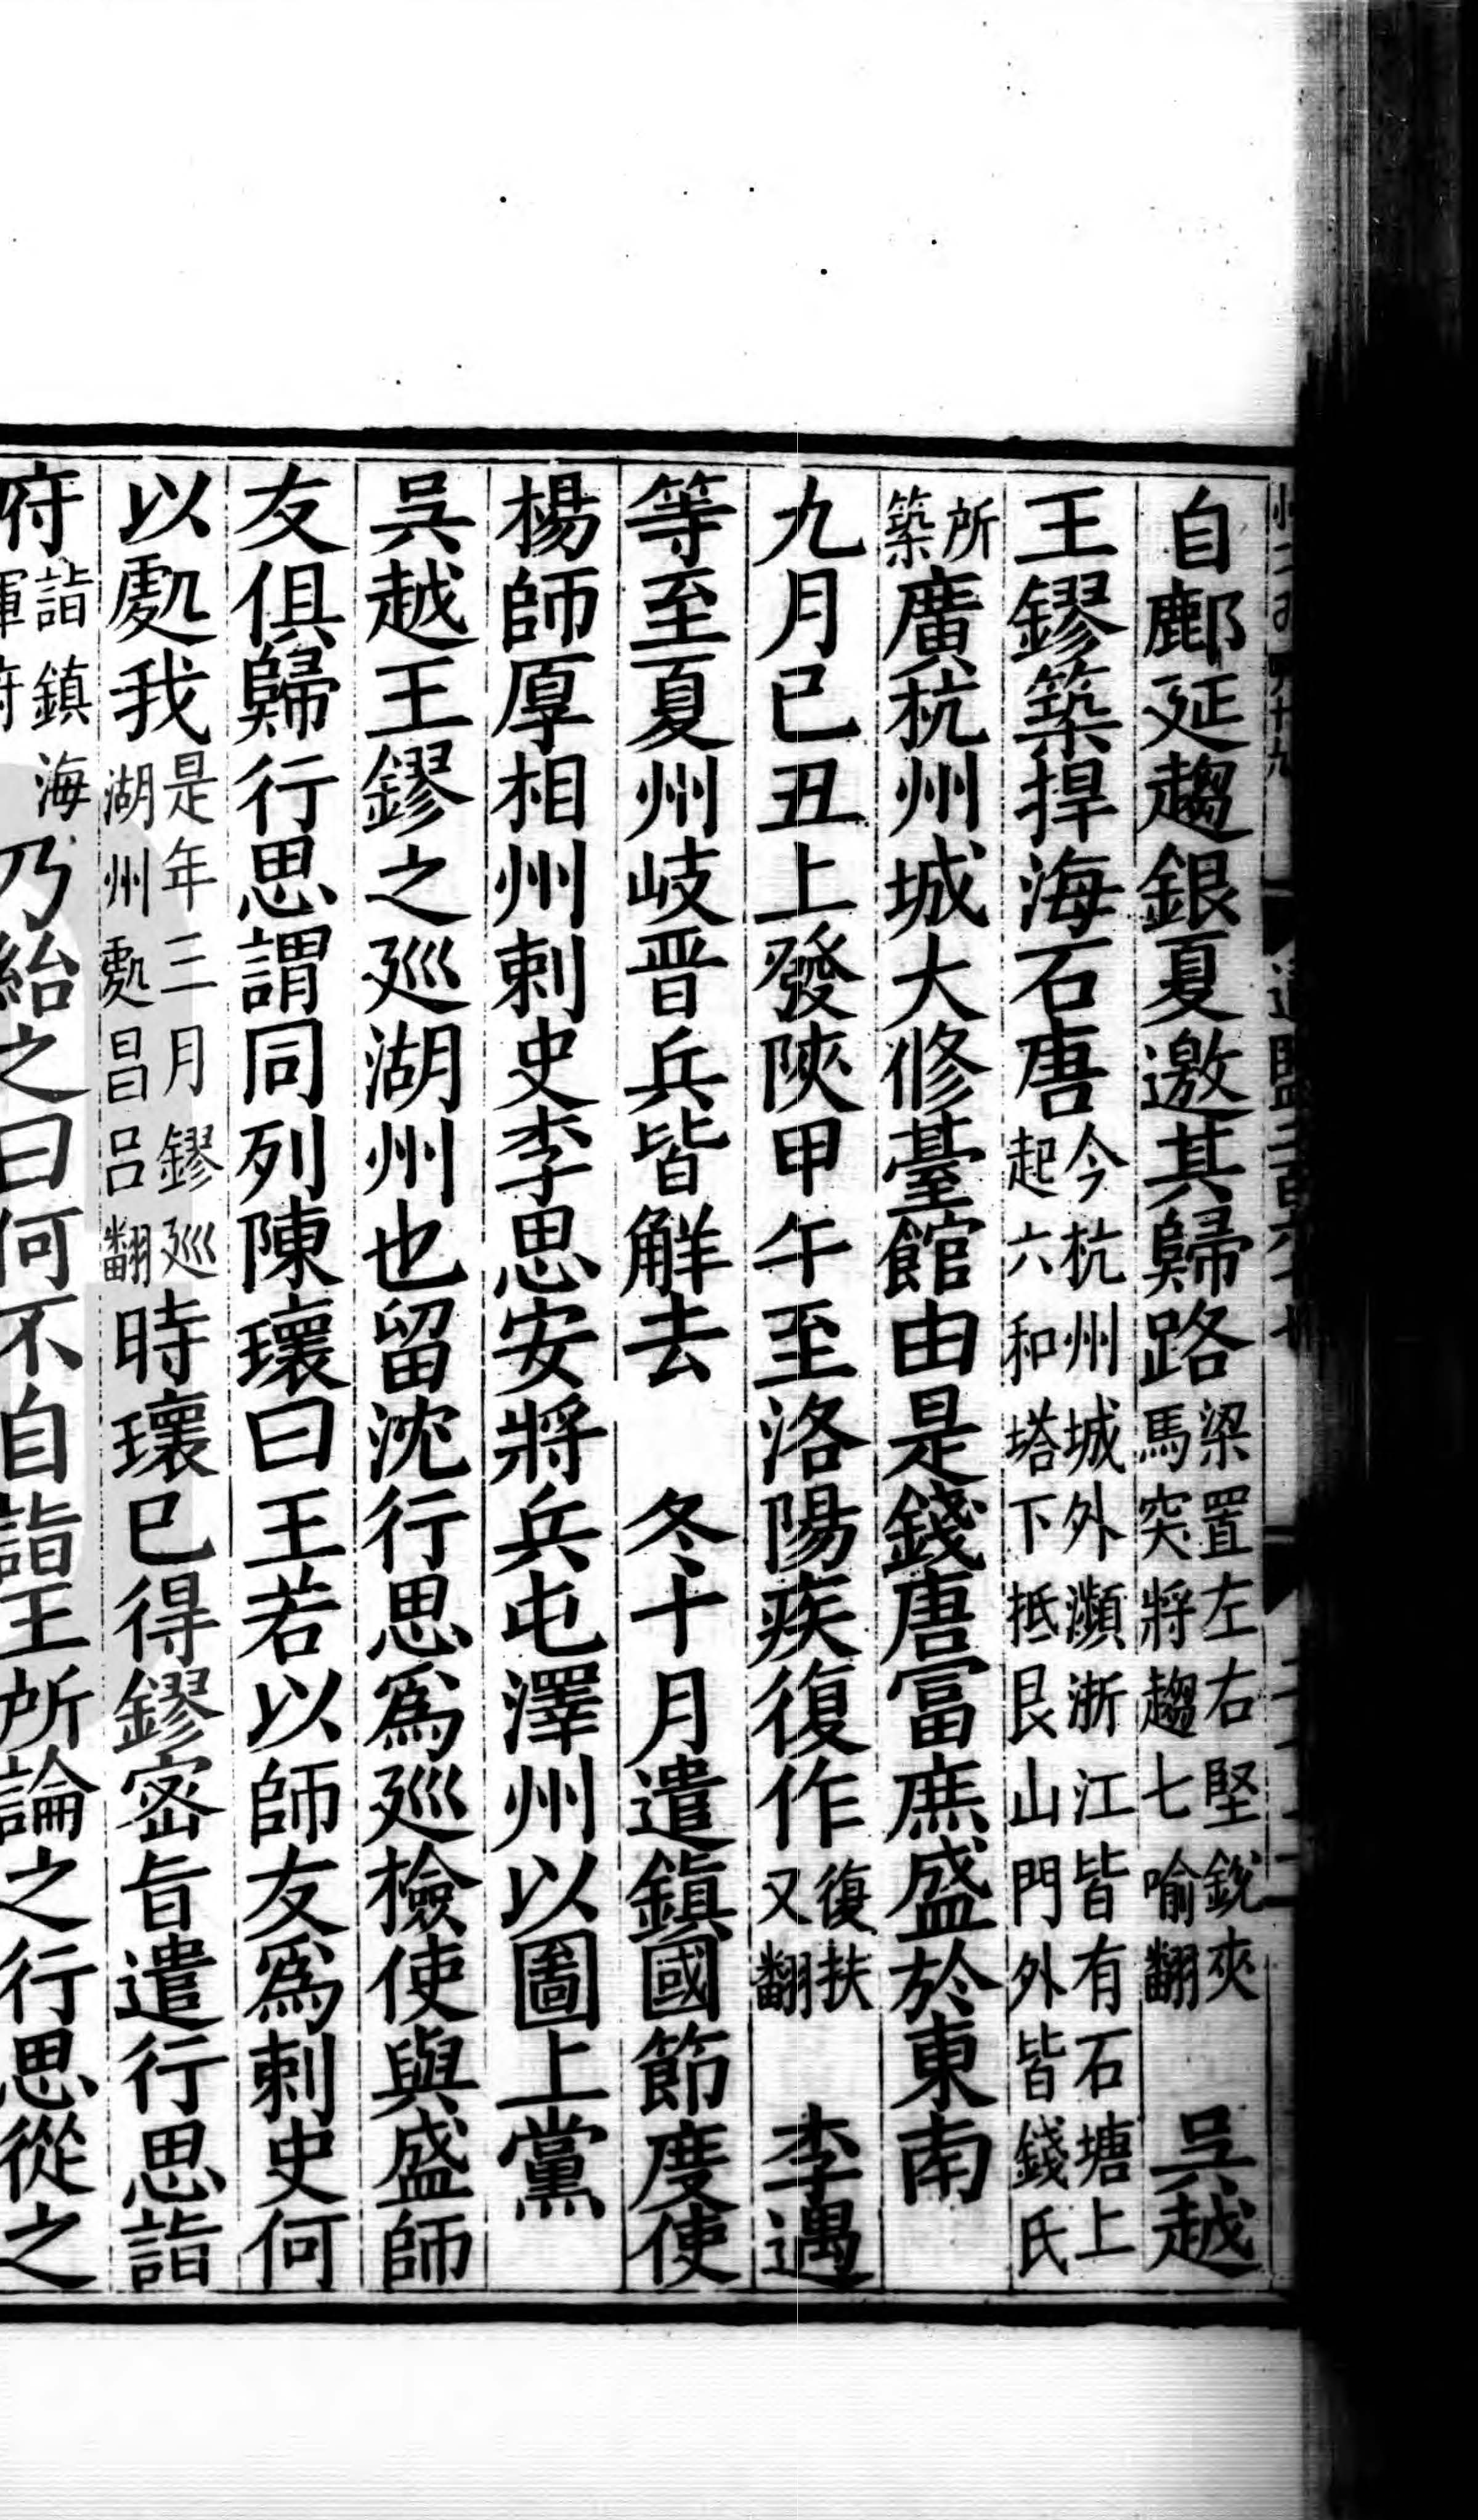 自鄜延趨銀夏邀其歸路梁置左右堅銳夾馬突將趨七喻翻　吳越
王鏐築捍海石唐今杭州城外瀕浙江皆有石塘上起六和塔下抵艮山門外皆錢氏
所築廣杭州城大修臺館由是錢唐富庶盛於東南
九月己丑上發陝甲午至洛陽疾復作復扶又翻　李遇
等至夏州岐晉兵皆解去　冬十月遣鎮國節度使
楊師厚相州刺史李思安將兵屯澤州以圖上黨
吳越王鏐之廵湖州也留沈行思爲廵檢使與盛師
友俱歸行思謂同列陳瓌曰王若以師友爲刺史何
以處我是年三月鏐廵湖州處昌呂翻時瓌已得鏐密旨遣行思詣
府詣鎮海軍府乃紿之曰何不自詣王所論之行思從之